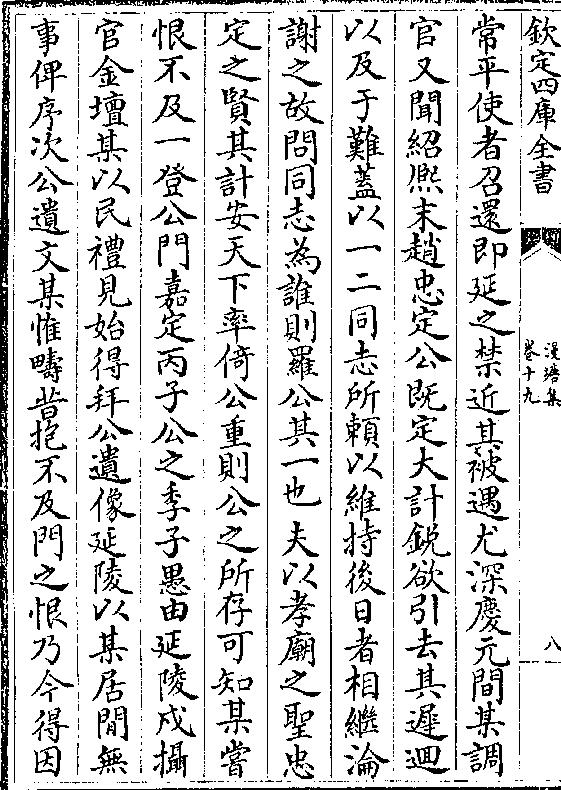 欽定四庫全書
漫塘集
卷十九
八
常平使者召還即延之禁近其被遇尤深慶元間某調
官又聞紹熙末趙忠定公既定大計鋭欲引去其遲迴
以及于難蓋以一二同志所頼以維持後日者相繼淪
謝之故問同志為誰則羅公其一也夫以孝廟之聖忠
定之賢其計安天下率倚公重則公之所存可知某嘗
恨不及一登公門嘉定丙子公之季子愚由延陵戍攝
官金壇某以民禮見始得拜公遺像延陵以某居閒無
事俾序次公遺文某惟疇昔抱不及門之恨乃今得因